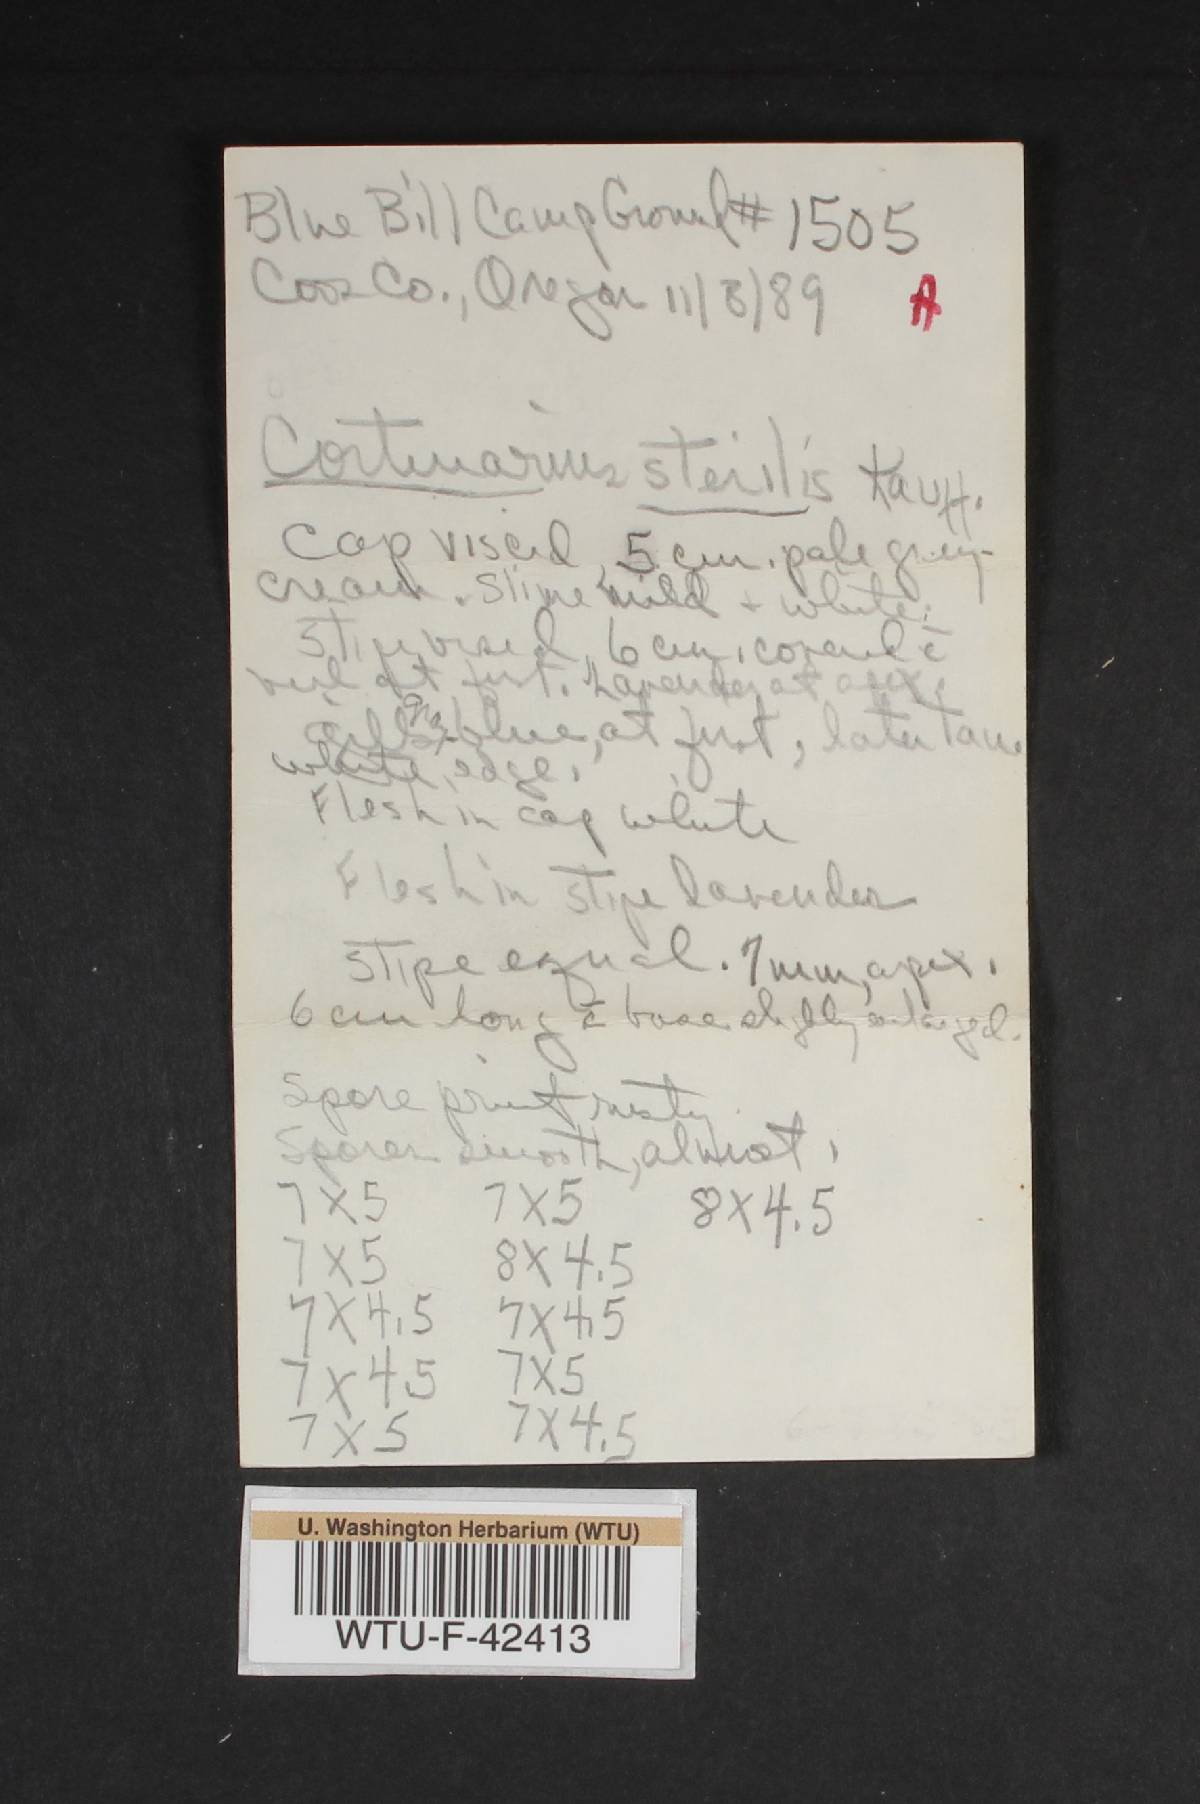 Blue Bill CampGround # 1505
Coos Co., Oregon 11/3/89 A
Cortinarius sterilis Kauff.
Cap viscid, 5 cm. pale grey-
cream. Slime mild + white.
Stipe viscid, 6 cm, covered c̄
veil at first. Lavender at apex.
Gills blue, at first, later tan
white edge.
Flesh in cap white
Flesh in stipe lavender
Stipe equal. 7mm, apex.
6 cm long c̄ base slightly enlarged.
Spore print rusty
Spores smooth, almost.
7X5 7X5 8X4.5
7X5 8X4.5
7X4.5 7X4.5
7X4.5 7X5
7X5 7X4.5
U. Washington Herbarium (WTU)
WTU-F-42413